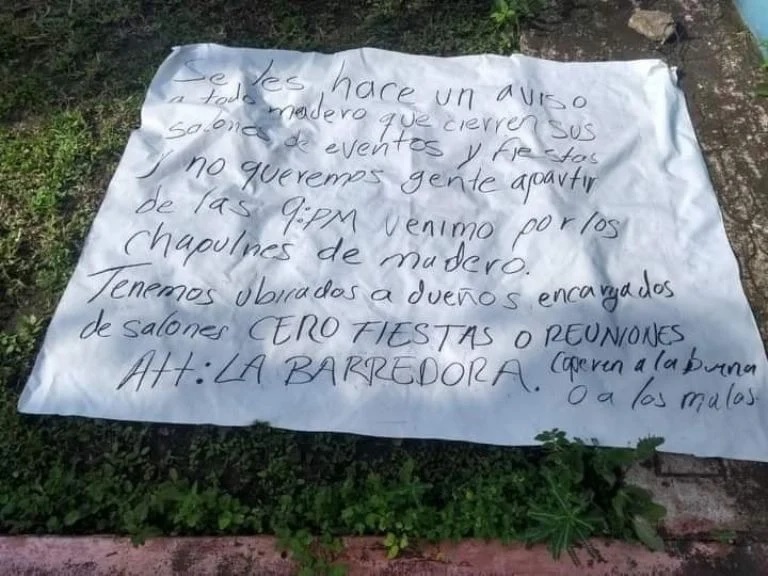 Se les hace un aviso
a todo madero que cierren sus
salones de eventos y fiestas
y no queremos gente apartir
de las 9:PM venimo por los
chapulnes de madero.
Tenemos ubicados a dueños encargados
de salones CERO FIESTAS O REUNIONES
Att: LA BARREDORA. Coperen a la buena
O a los malas